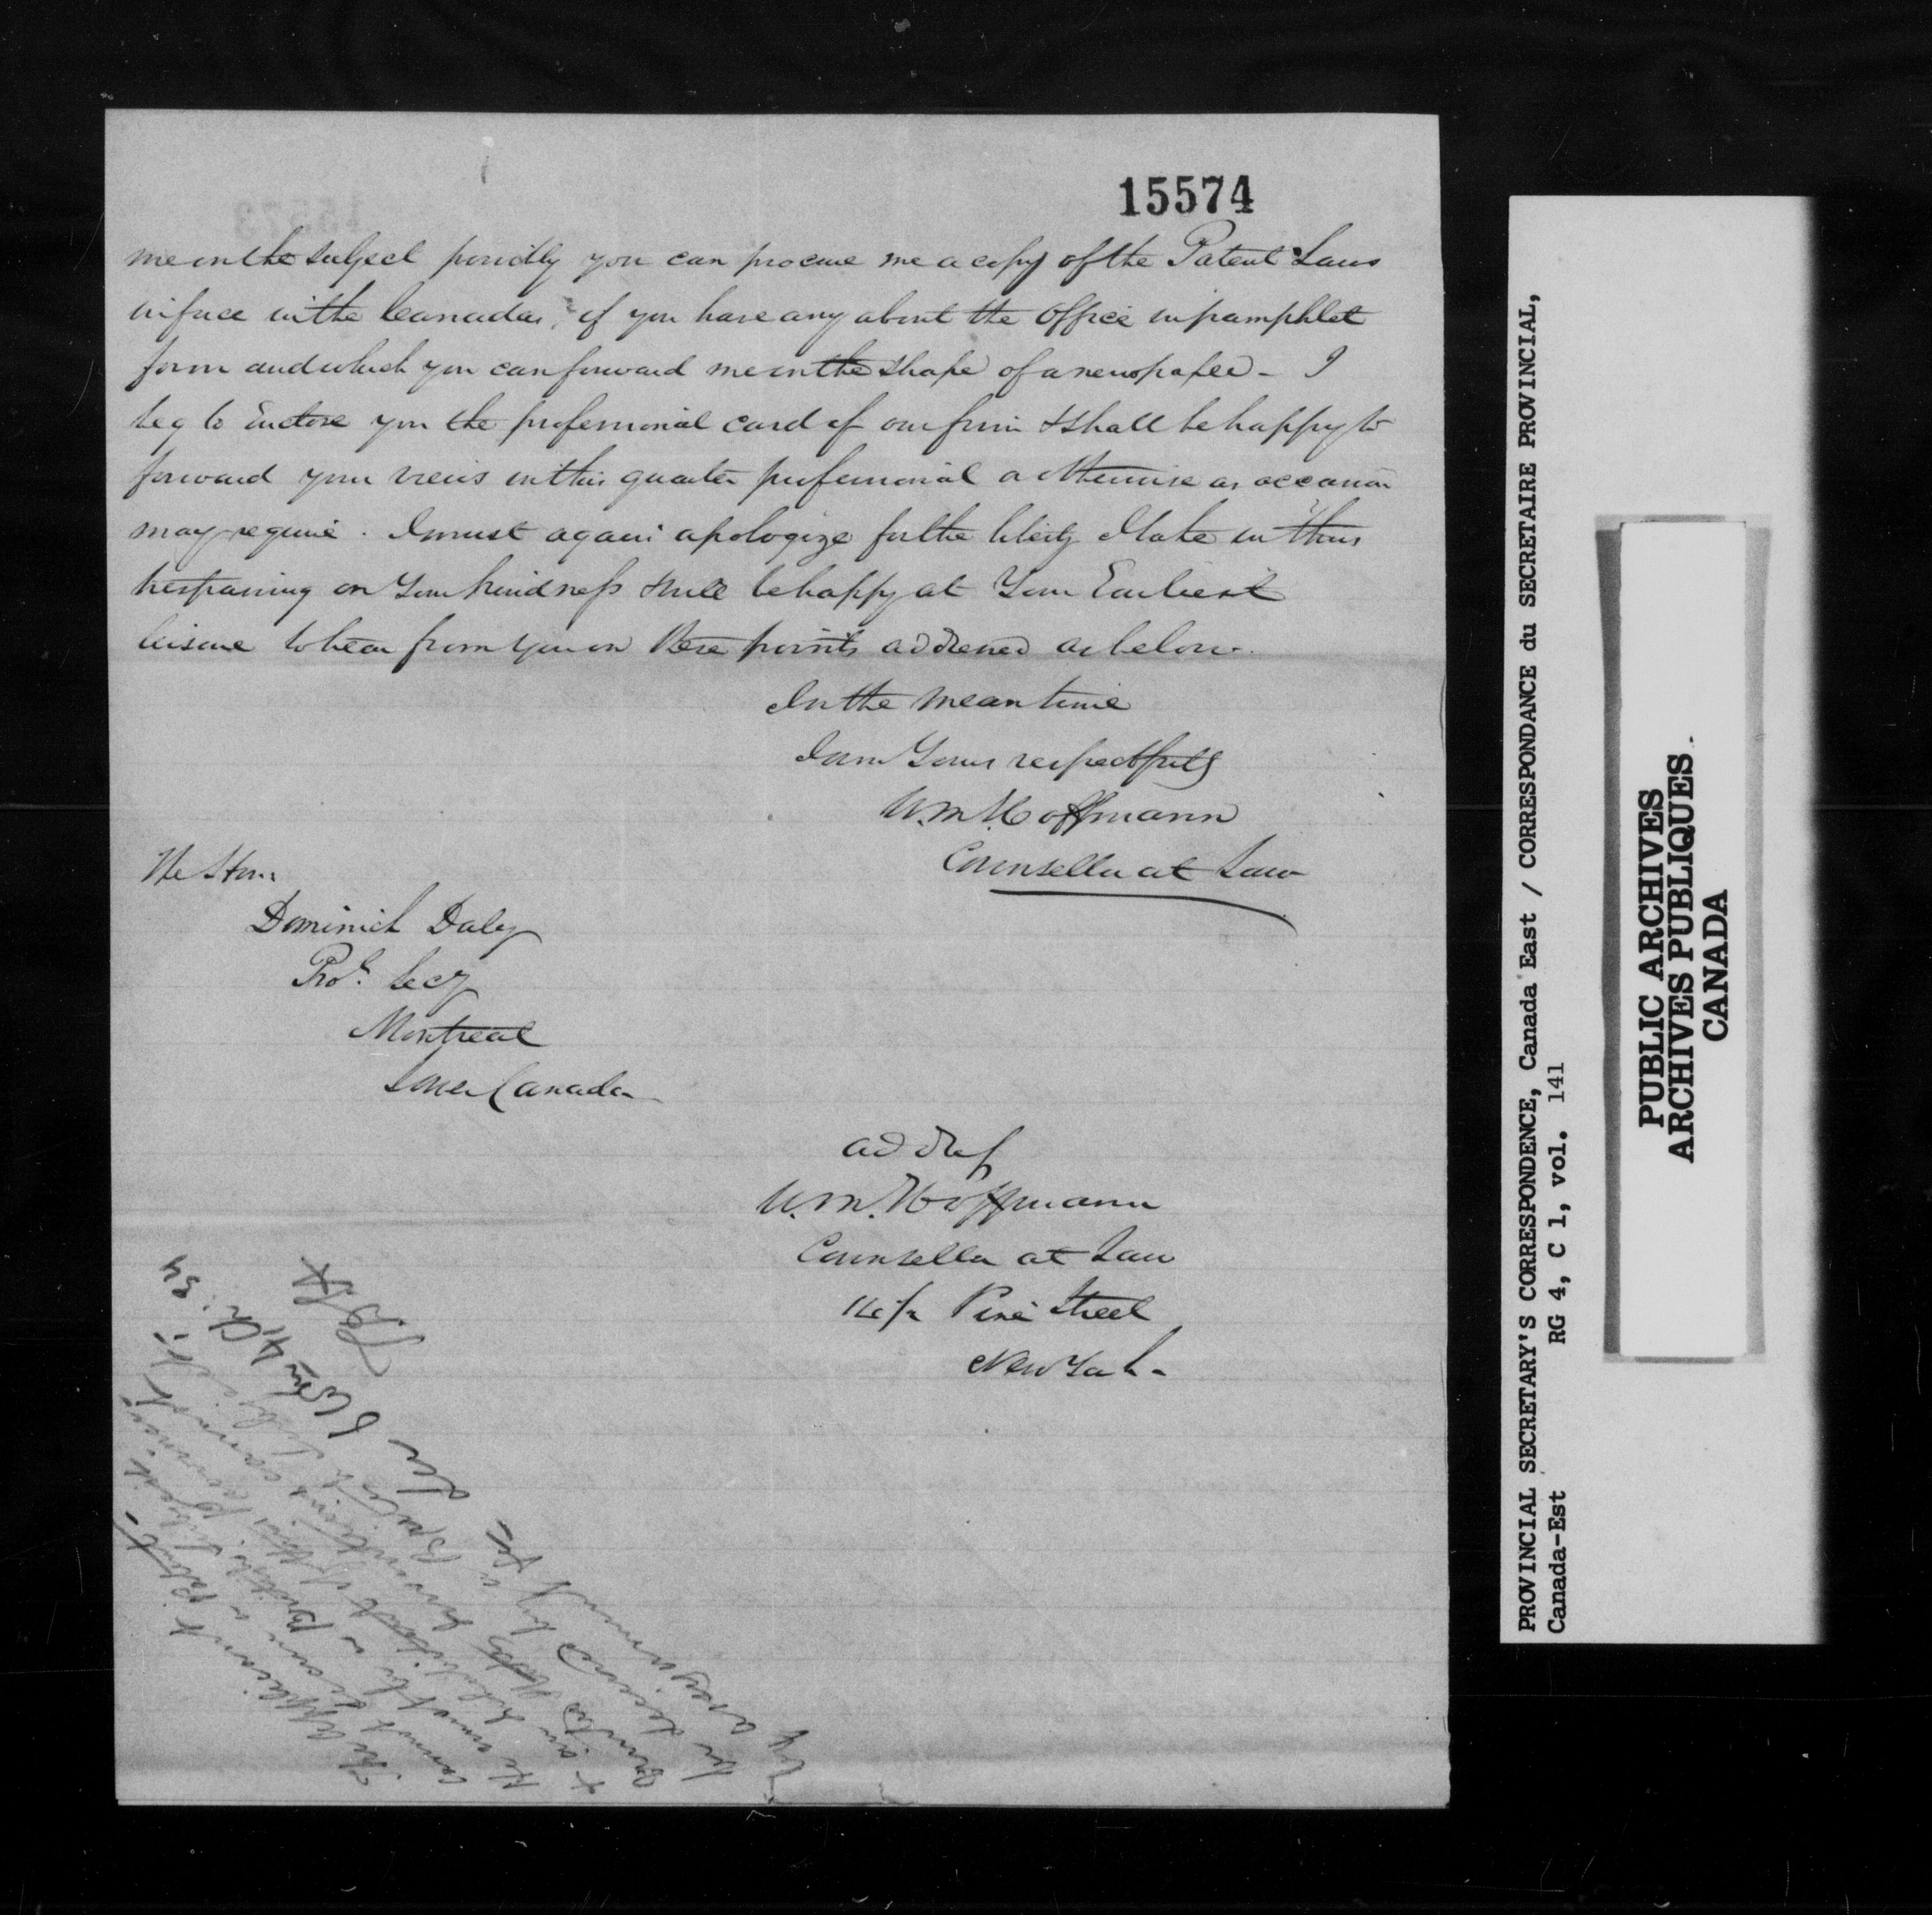 15574
me in the subject possibly you can procure me a copy of the Patent Laws
in force in the Canadas, if you have any about the office in pamphlet
form and which you can forward me in the shape of a newspaper - I
beg to Enclose you the professional card of our firm & shall be happy to
forward your views in this quarter professional or otherwise as occasion
may require. I must again apologize for the liberty I take in thus
trespassing on your kindness & will be happy at your Earliest
leisure to hear from you on these points addressed as below.
In the mean time
I am Yours respectfully
Wm. Hoffmann
Counsellor at Law
The Hon:
Dominick Daly
Prol. Secy
Montreal
Lower Canada
address
Wm. Hoffmann
Counsellor at Law
Pine Street
New York -
The applicant
cannot a Patent -
He must be a British Subject
& an Inhabitant of this province
Granted Provincial cannot
be a British Subject
by assignment
PROVINCIAL SECRETARY'S CORRESPONDENCE, Canada East / CORRESPONDANCE du SECRETAIRE PROVINCIAL,
Canada-Est RG 4, C 1, vol. 141
PUBLIC ARCHIVES
ARCHIVES PUBLIQUES
CANADA